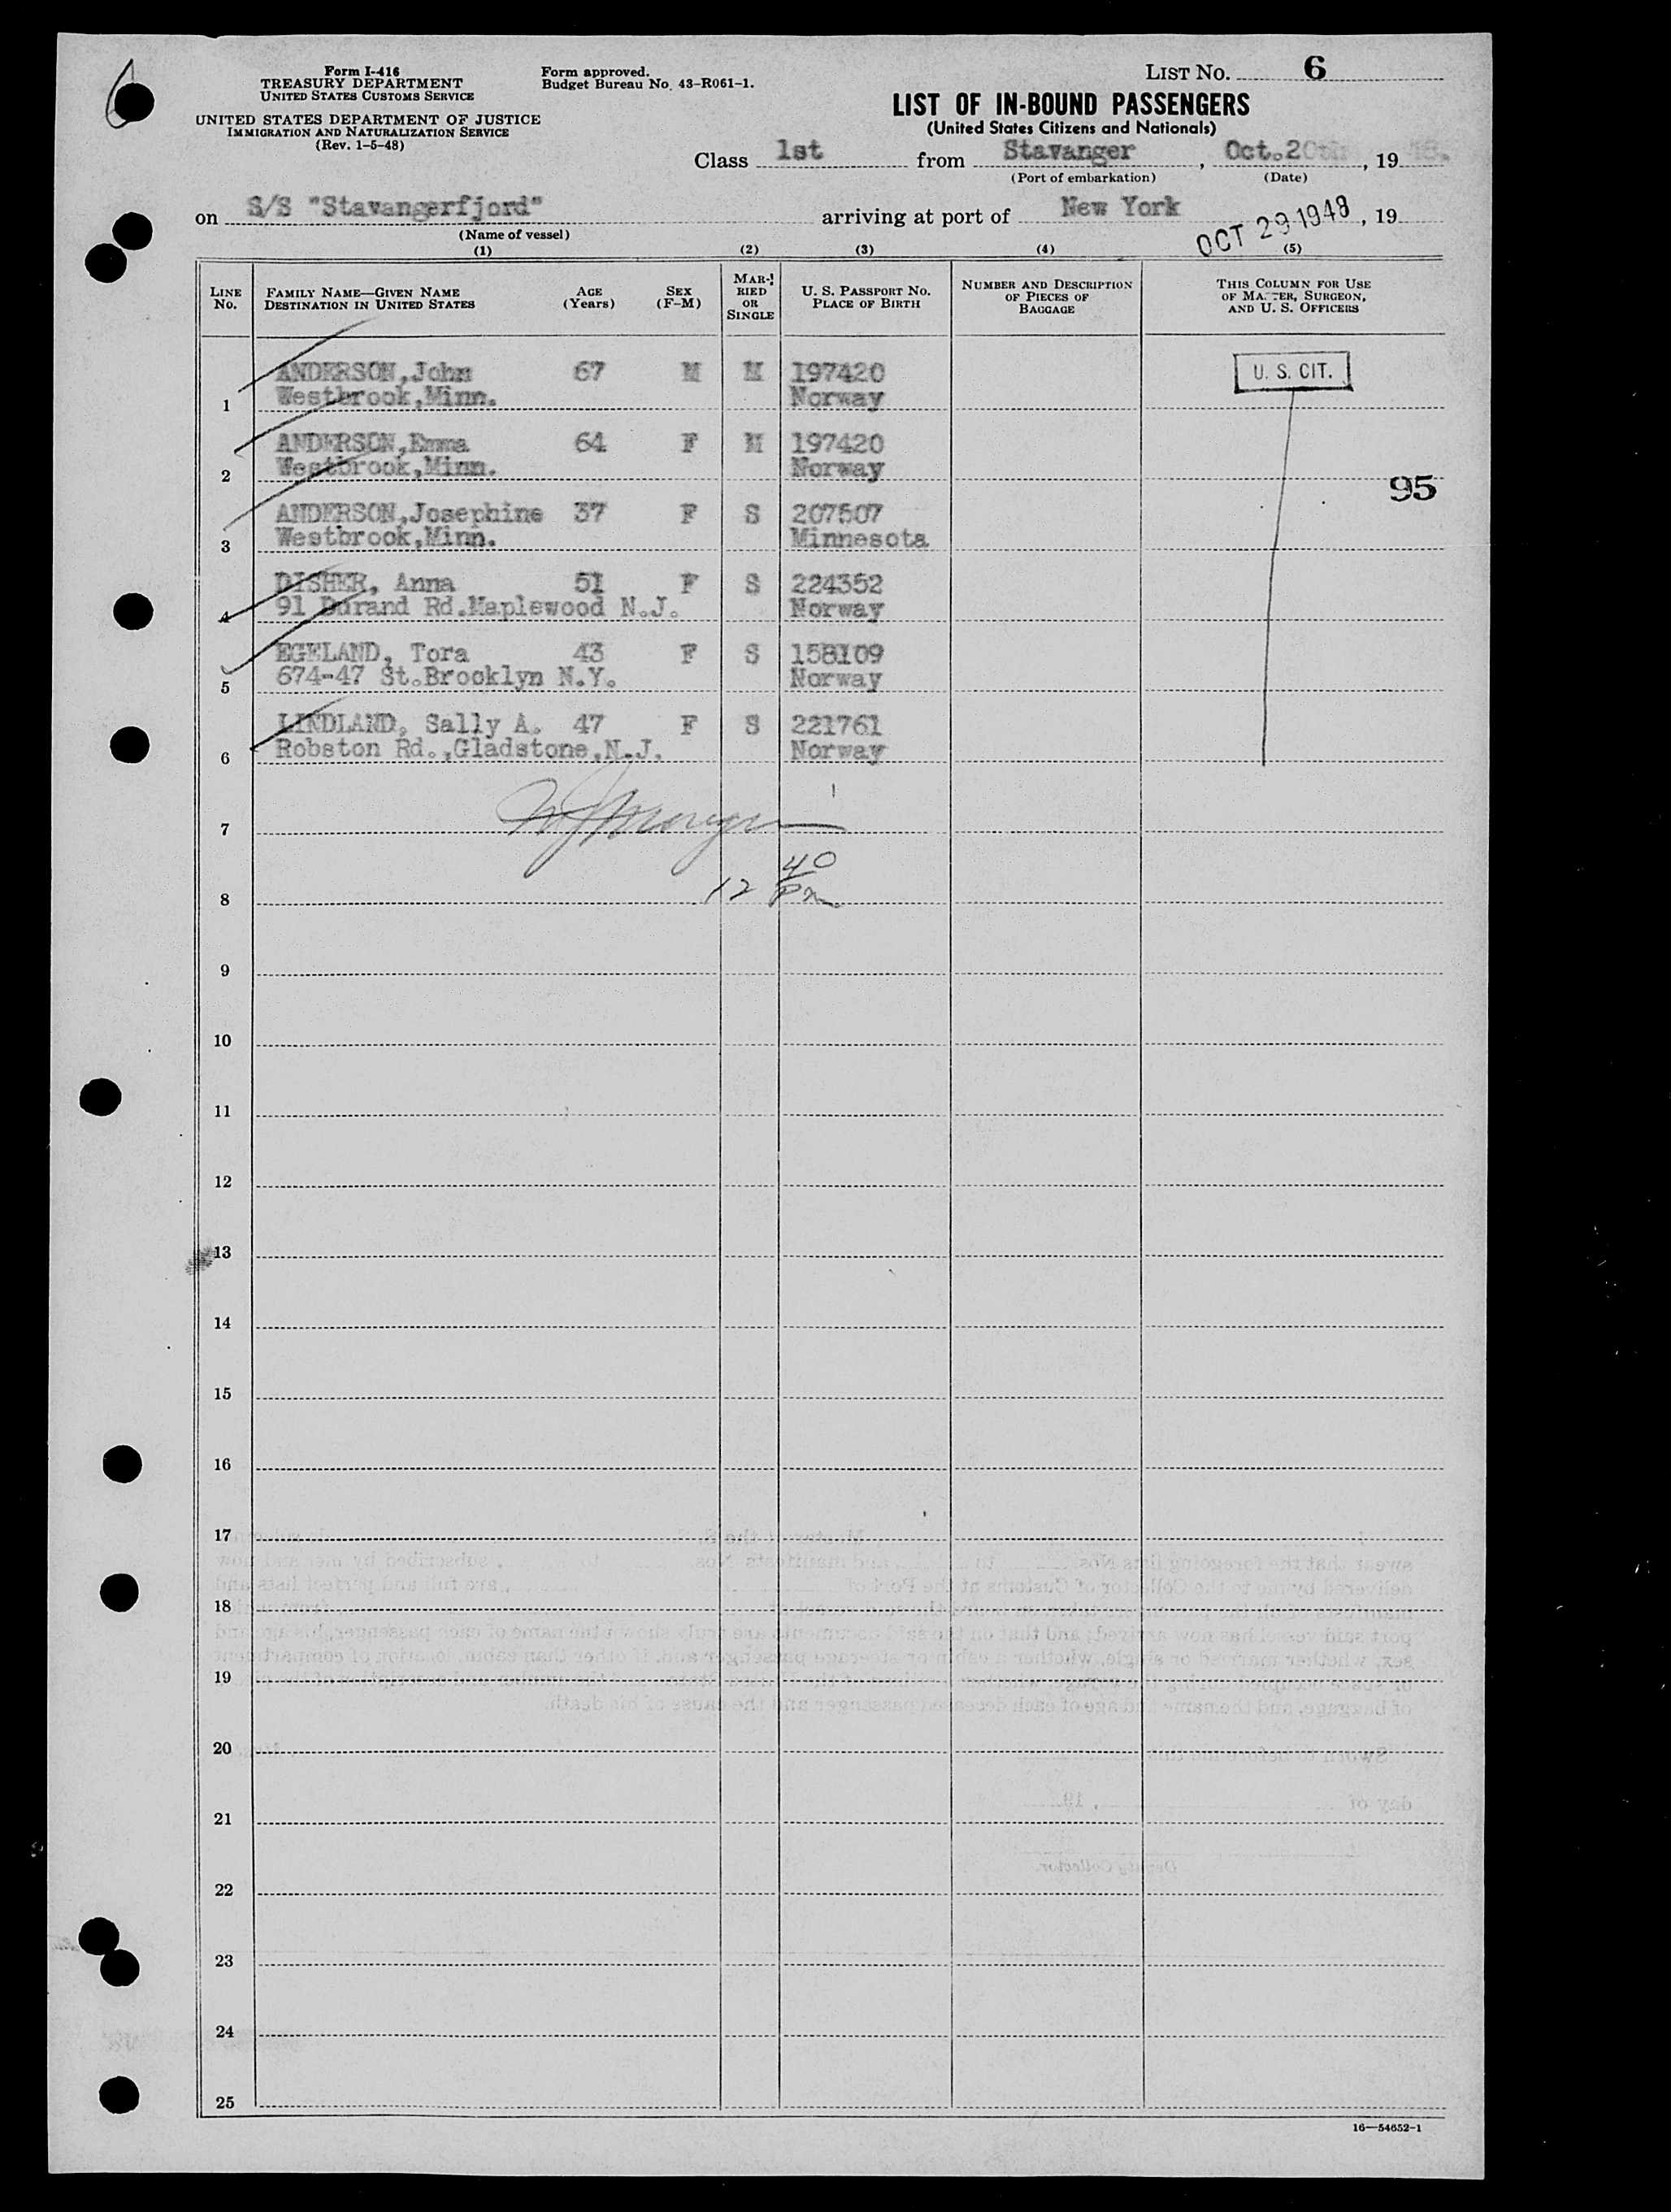 Form I-416
TREASURY DEPARTMENT
UNITED STATES CUSTOMS SERVICE
UNITED STATES DEPARTMENT OF JUSTICE
IMMIGRATION AND NATURALIZATION SERVICE
(Rev. 1-5-48)
Form approved.
Budget Bureau No. 43-R061-1.
LIST NO. 6
LIST OF IN-BOUND PASSENGERS
(United States Citizens and Nationals)
Class 1st from Stavanger, Oct.20th, 19 48.
(Port of embarkation) (Date)
on S/S "Stavangerfjord" arriving at port of New York OCT 29 1948, 19
(Name of vessel)
(1) (2) (3) (4) (5)
LINE NO. FAMILY NAME—GIVEN NAME DESTINATION IN UNITED STATES AGE (Years) SEX (F-M) MARRIED OR SINGLE U. S. PASSPORT NO. PLACE OF BIRTH NUMBER AND DESCRIPTION OF PIECES OF BAGGAGE THIS COLUMN FOR USE OF MASTER, SURGEON, AND U. S. OFFICERS
ANDERSON,John 67 M M 197420 U. S. CIT.
1 Westbrook,Minn. Norway
ANDERSON,Emma 64 F M 197420
2 Westbrook,Minn. Norway
95
ANDERSON,Josephine 37 F S 207507
3 Westbrook,Minn. Minnesota
DISHER, Anna 51 F S 224352
4 91 Durand Rd.Maplewood N.J. Norway
EGELAND, Tora 43 F S 158109
5 674-47 St.Brooklyn N.Y. Norway
LINDLAND, Sally A. 47 F S 221761
6 Robston Rd.,Gladstone,N.J. Norway
7
8 12 40 pm
9
10
11
12
13
14
15
16
17
18
19
20
21
22
23
24
25
16—54652-1